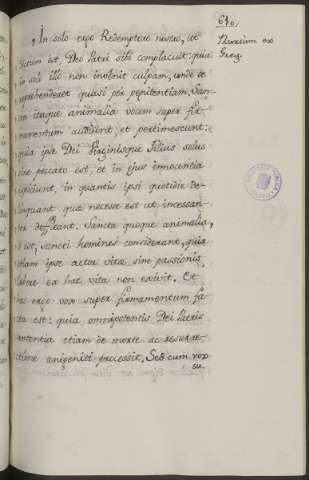 640.
Tharsium ex
Greg.
In solo ergo Redemptore nostro, ut
dictum est, Deo Patri sibi complacuit: quia
in solo illo non invenit culpam, unde se
reprehenderet quasi per penitentiam. San-
cta itaque animalia vocem super fir-
mamentum audiunt, et pertimescunt:
quia ipse Dei Virginisque Filius solus
sine peccato est, et in ejus innocentia
inspiciunt, in quantis ipsi quotidie de-
linquant quæ necesse est ut incessan-
ter defleant. Sancta quoque animalia,
id est, sancti homines considerant, quia
etiam ipse actor vitæ sine passionis
labore ex hac vita non exivit. Et
hæc ergo vox super firmamentum fa-
cta est: quia omnipotentis Dei Patris
sententia etiam de morte ac resurre-
ctione unigeniti processit. Sed cum vox
su-